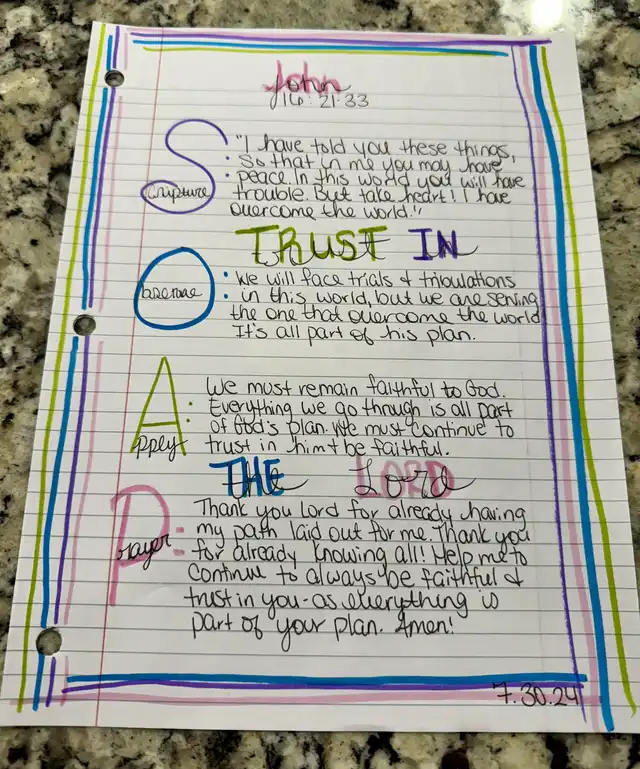 John
16:21-33
Scripture: "I have told you these things,
So that in me you may have
peace. In this world you will have
trouble. But take heart! I have
overcome the world."
TRUST IN
Observe: We will face trials & tribulations
in this world, but we are serving
the one that overcome the world
It's all part of his plan.
Apply: We must remain faithful to God.
Everything we go through is all part
of God's plan. We must continue to
trust in him & be faithful.
THE LORD
Prayer: Thank you lord for already having
my path laid out for me. Thank you
for already knowing all! Help me to
continue to always be faithful &
trust in you-as everything is
part of your plan. Amen!
7.30.24